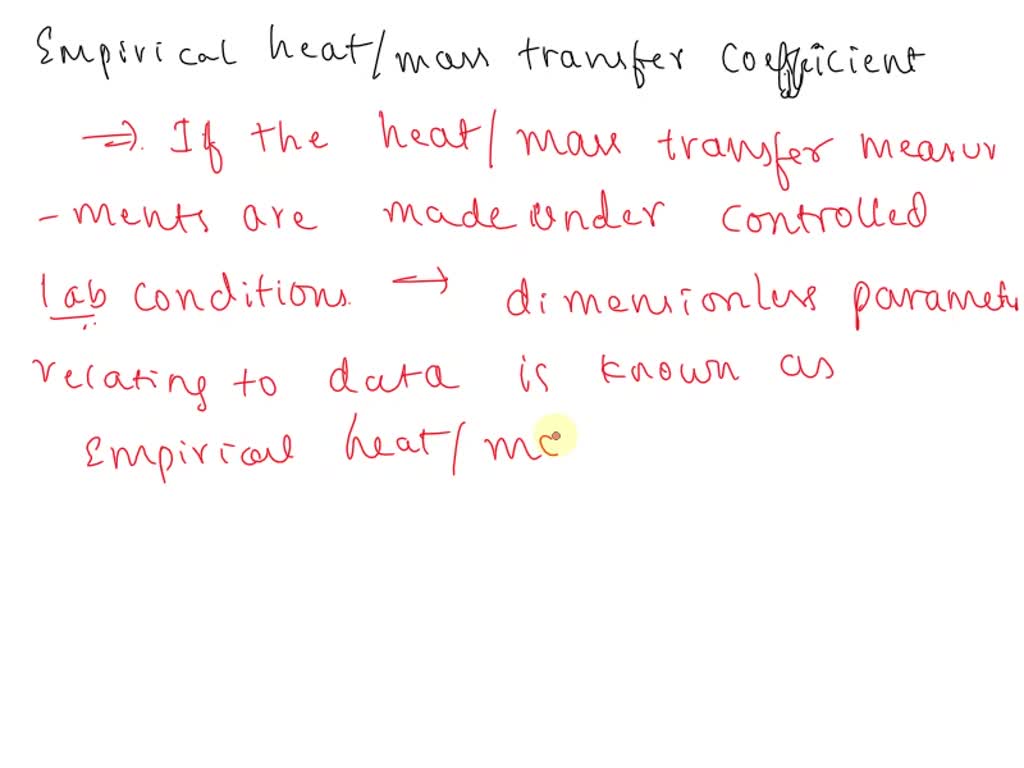 Empirical heat/mass transfer coefficient
⇒. If the heat/mass transfer measur
-ments are made under controlled
lab conditions. → dimensionless paramete
relating to data is known as
Empirical heat/ma